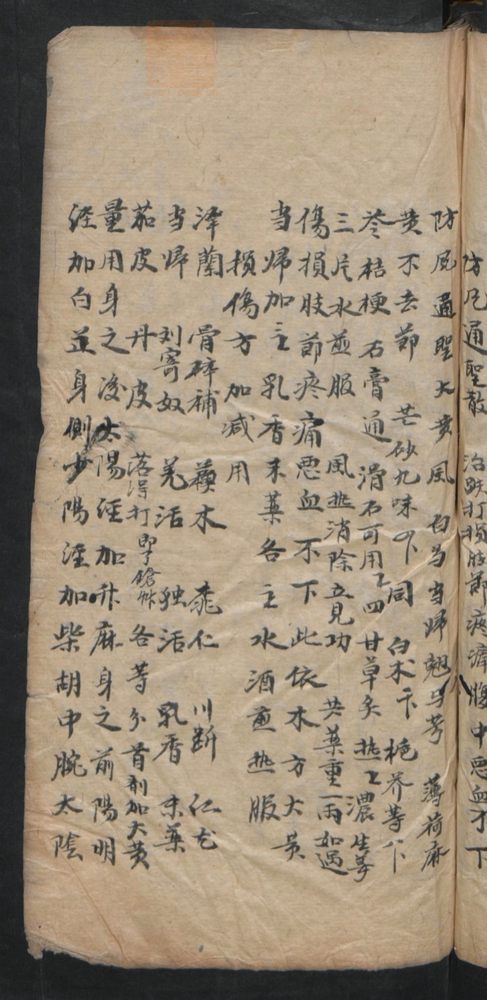 防风通聖散 治跌打損肢節疼痛腹中悪血不下
防风通聖大黄風 白芍当歸翘与芎 薄荷麻
黄不去節 芒砂九味下同 白术下 梔芥等下
苓桔梗 石膏通滑石可用之四 甘草炙 热之濃 生姜
三片水煎服 風热消除立見功 共藥重一両 如遇
傷損肢節疼痛 悪血不下 此依本方大黄
当歸加主 乳香末藥各主 水酒煎热服
损傷方加减用
泽蘭 骨碎補 蘇木 桃仁 川断 红花
当归 刘寄奴 羌活 独活 乳香 末藥
茄皮 丹皮 落得打 各等分 首剂加大黄
量用身之後太陽经加升麻身之前陽明
经加白芷身側少陽泾加柴胡中腕太陰